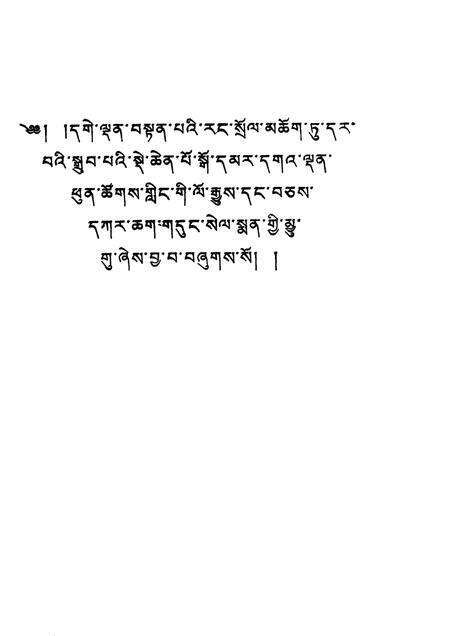 ༄༅། །དགེ་ལྡན་བསྟན་པའི་རང་སྲོལ་མཆོག་ཏུ་དར་
བའི་སྒྲུབ་པའི་སྡེ་ཆེན་པོ་སྒོ་དམར་དགའ་ལྡན་
ཕུན་ཚོགས་གླིང་གི་ལོ་རྒྱུས་དང་བཅས་
དཀར་ཆག་གདུང་སེལ་སྨན་གྱི་མྱུ་
གུ་ཞེས་བྱ་བ་བཞུགས་སོ། །